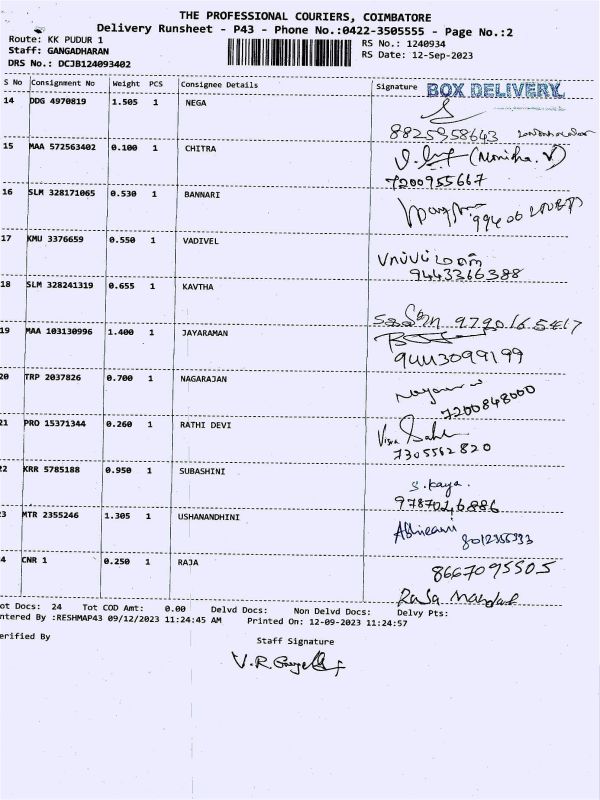 THE PROFESSIONAL COURIERS, COIMBATORE
Delivery Runsheet - P43 - Phone No.:0422-3505555 - Page No.:2
Route: KK PUDUR 1
RS No.: 1240934
Staff: GANGADHARAN
RS Date: 12-Sep-2023
DRS No.: DCJB124093402
S No Consignment No Weight PCS Consignee Details Signature BOX DELIVERY
14 DDG 4970819 1.505 1 NEGA
8825958643
15 MAA 572563402 0.100 1 CHITRA
(Monisha. V)
7200955667
16 SLM 328171065 0.530 1 BANNARI
17 KMU 3376659 0.550 1 VADIVEL
9443366388
18 SLM 328241319 0.655 1 KAVTHA
9720165417
19 MAA 103130996 1.400 1 JAYARAMAN
9443099199
20 TRP 2037826 0.700 1 NAGARAJAN
7200848000
21 PRO 15371344 0.260 1 RATHI DEVI
7305562820
22 KRR 5785188 0.950 1 SUBASHINI
S. Kaya.
9787026886
3 MTR 2355246 1.305 1 USHANANDHINI
4 CNR 1 0.250 1 RAJA
8667095505
ot Docs: 24 Tot COD Amt: 0.00 Delvd Docs: Non Delvd Docs: Delvy Pts:
ntered By :RESHMAP43 09/12/2023 11:24:45 AM Printed On: 12-09-2023 11:24:57
erified By
Staff Signature